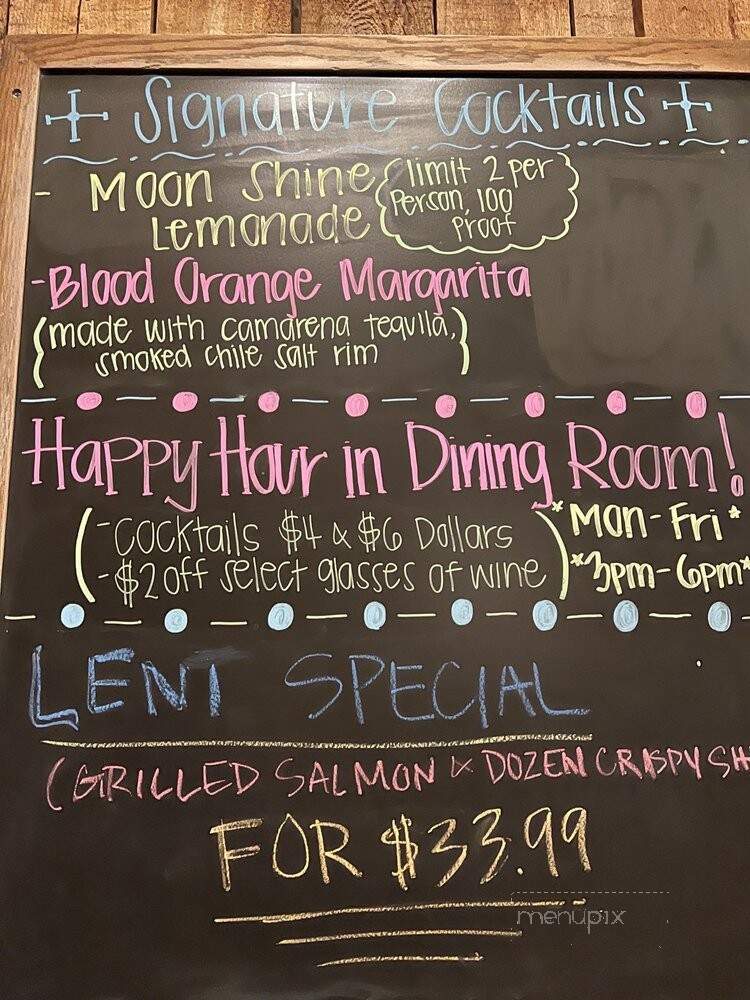 Signature Cocktails
- Moon Shine
Lemonade
(limit 2 per
Person, 100
Proof
-Blood Orange Margarita
(made with camarena tequila,
smoked chile salt rim)
Happy Hour in Dining Room!
(-Cocktails $4 & $6 Dollars
-$2 off select glasses of wine)
*Mon-Fri*
*3pm-6pm*
LENT SPECIAL
(GRILLED SALMON & DOZEN CRISPY SH
FOR $33.99
menupix